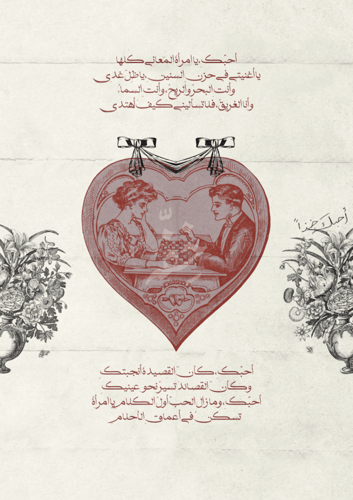 أحبّك، يا امرأة المعاني كلها
يا أغنيتي في حزن السنين، يا ظلّ غدي
وأنتِ البحر والريح، وأنتِ السماء
وأنا الغريق، فلا تسأليني كيف أهتدي
أحبّك، كأن القصيدة أنجبتك
وكأن القصائد تسير نحو عينيك
أحبّك، وما زال الحب أول الكلام يا امرأة
تسكن في أعماق الأحلام